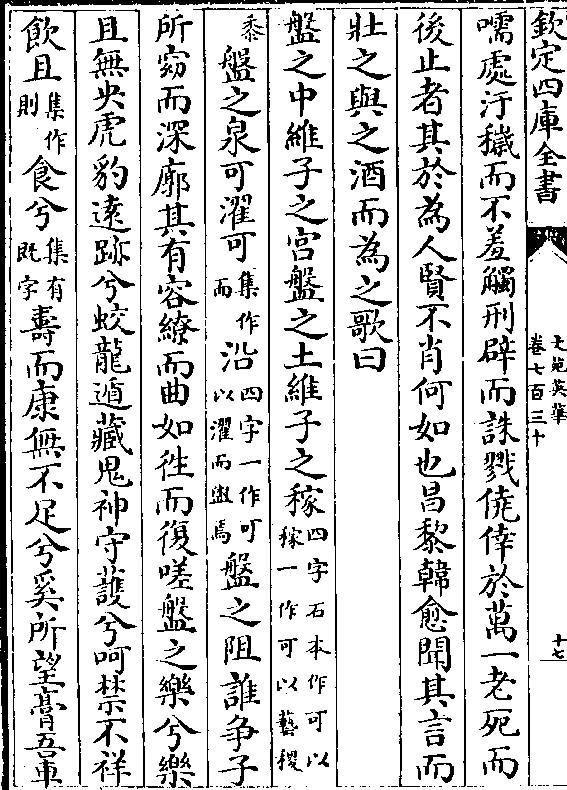 欽定四庫全書
文苑英華
卷七百三十
十七
嚅處汙穢而不羞觸刑辟而誅戮僥倖於萬一老死而
後止者其於為人賢不肖何如也昌黎韓愈聞其言而
壯之與之酒而為之歌曰
盤之中維子之宮盤之土維子之稼四字石本作可以稼一作可以藝稷
黍盤之泉可濯可集作而沿四字一作可以濯而遊焉盤之阻誰争子
所窈而深廓其有容繚而曲如徃而復嗟盤之樂兮樂
且無央虎豹遠跡兮蛟龍遁藏鬼神守護兮呵禁不祥
飲且集作則食兮集有既字壽而康無不足兮奚所望膏吾車